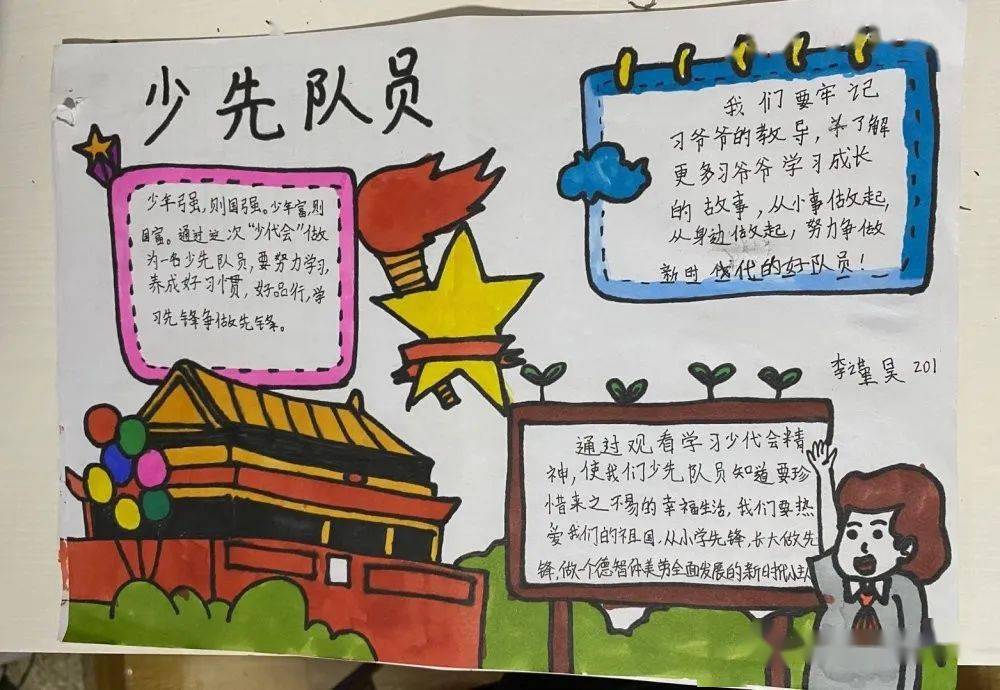 少先队员
少年强,则国强。少年富,则
国富。通过这次“少代会”做
为一名少先队员,要努力学习,
养成好习惯,好品行,学
习先锋争做先锋。
我们要牢记
习爷爷的教导,并了解
更多习爷爷学习成长
的故事,从小事做起,
从身边做起,努力争做
新时代的好队员!
李瑾昊 201
通过观看学习少代会精
神,使我们少先队员知道要珍
惜来之不易的幸福生活,我们要热
爱我们的祖国,从小学先锋,长大做先
锋,做个德智体美劳全面发展的新时代